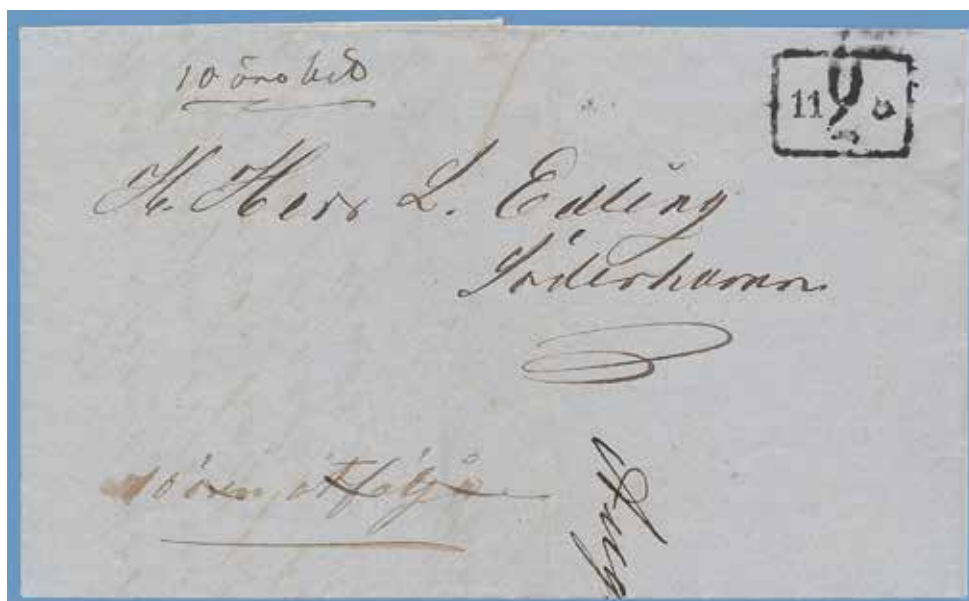 10 öre bet
11 9 8
H. Herr L. Edling
Söderhamn
10 öre, åtföljer